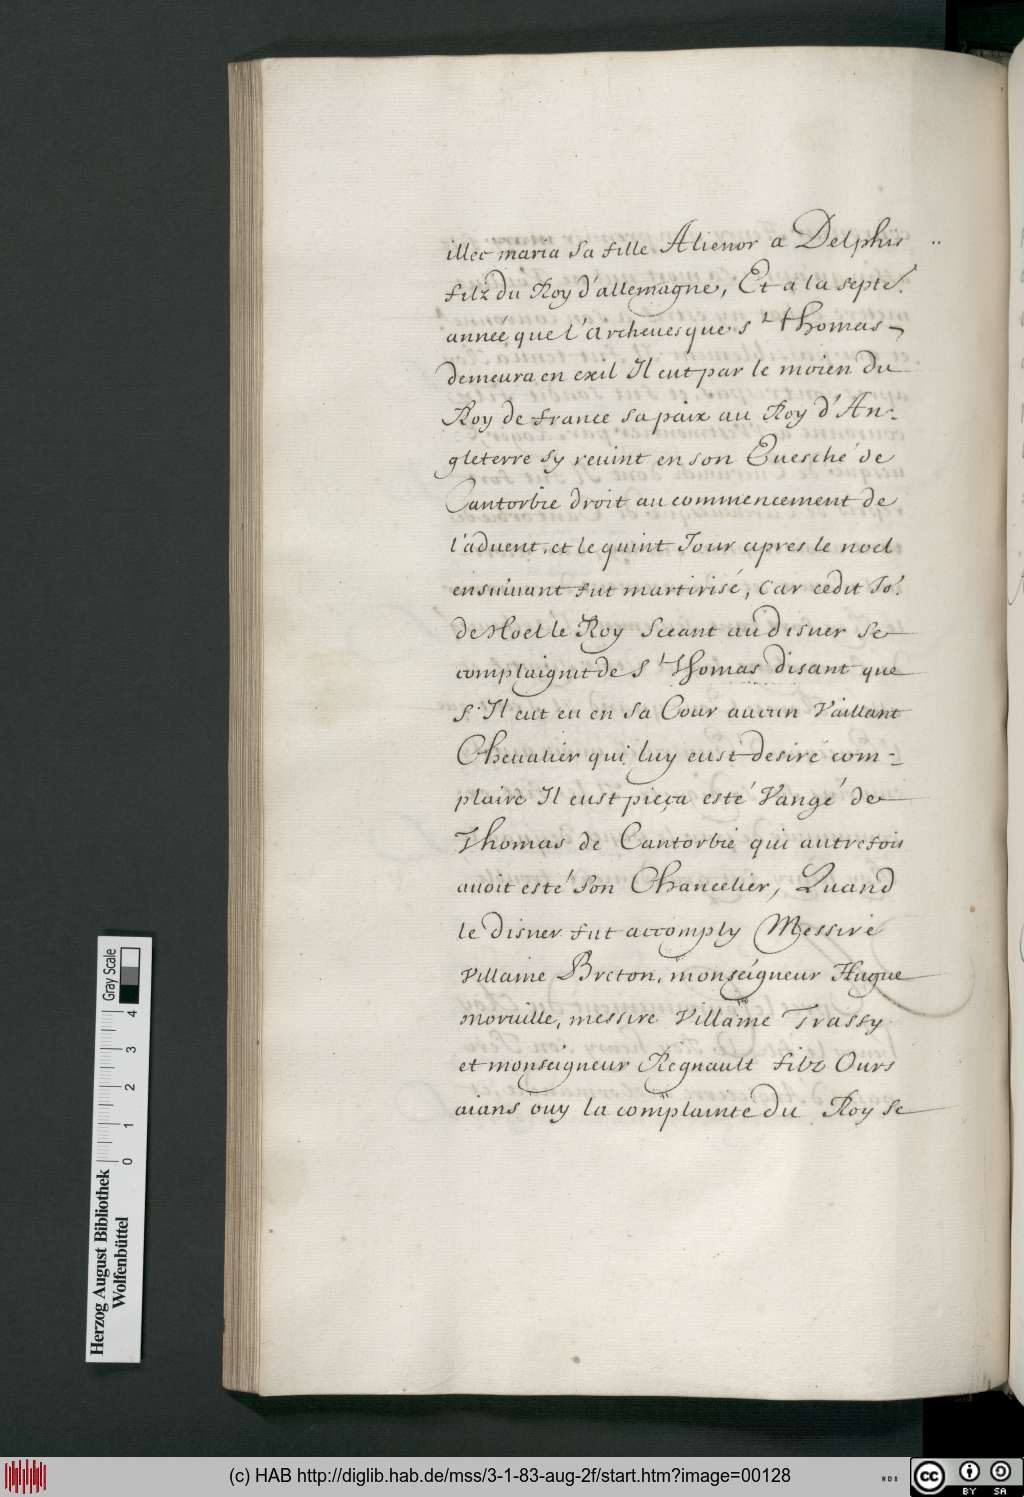 illec maria sa fille Alienor a Delphis ..
filz du Roy d'allemagne, Et a la septe.
année que l'archeuesque St Thomas
demeura en exil Il eut par le moien du
Roy de france sa paix au Roy d'An-
gleterre sy reuint en son Euesché de
Cantorbie droit au commencement de
l'aduent, et le quint Jour apres le noel
ensuiuant fut martirisé, Car cedit Jo.r
de Noel le Roy seeant au disner se
complaignit de St Thomas disant que
s'Il eut eu en sa Cour aucun Vaillant
Cheualier qui luy eust desiré com-
plaire Il eust pieça esté Vangé de
Thomas de Cantorbie qui autrefois
auoit esté son Chancelier, Quand
le disner fut accomply Messire
Villaine Breton, monseigneur Hugue
moruille, messire Villaine Trassy
et monseigneur Regnault filz Ours
aians ouy la complainte du Roy se
Herzog August Bibliothek
Wolfenbüttel
0 1 2 3 4
Gray Scale
(c) HAB http://diglib.hab.de/mss/3-1-83-aug-2f/start.htm?image=00128
WDB
cc BY SA